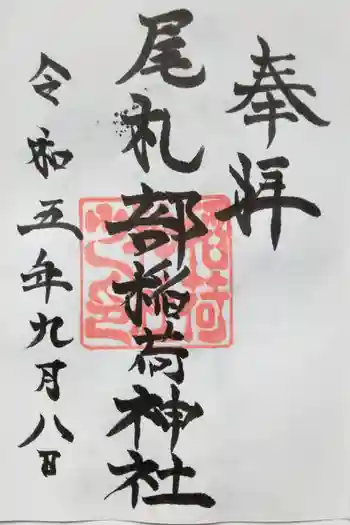 奉拝
尾札部稲荷神社
令和五年九月八日